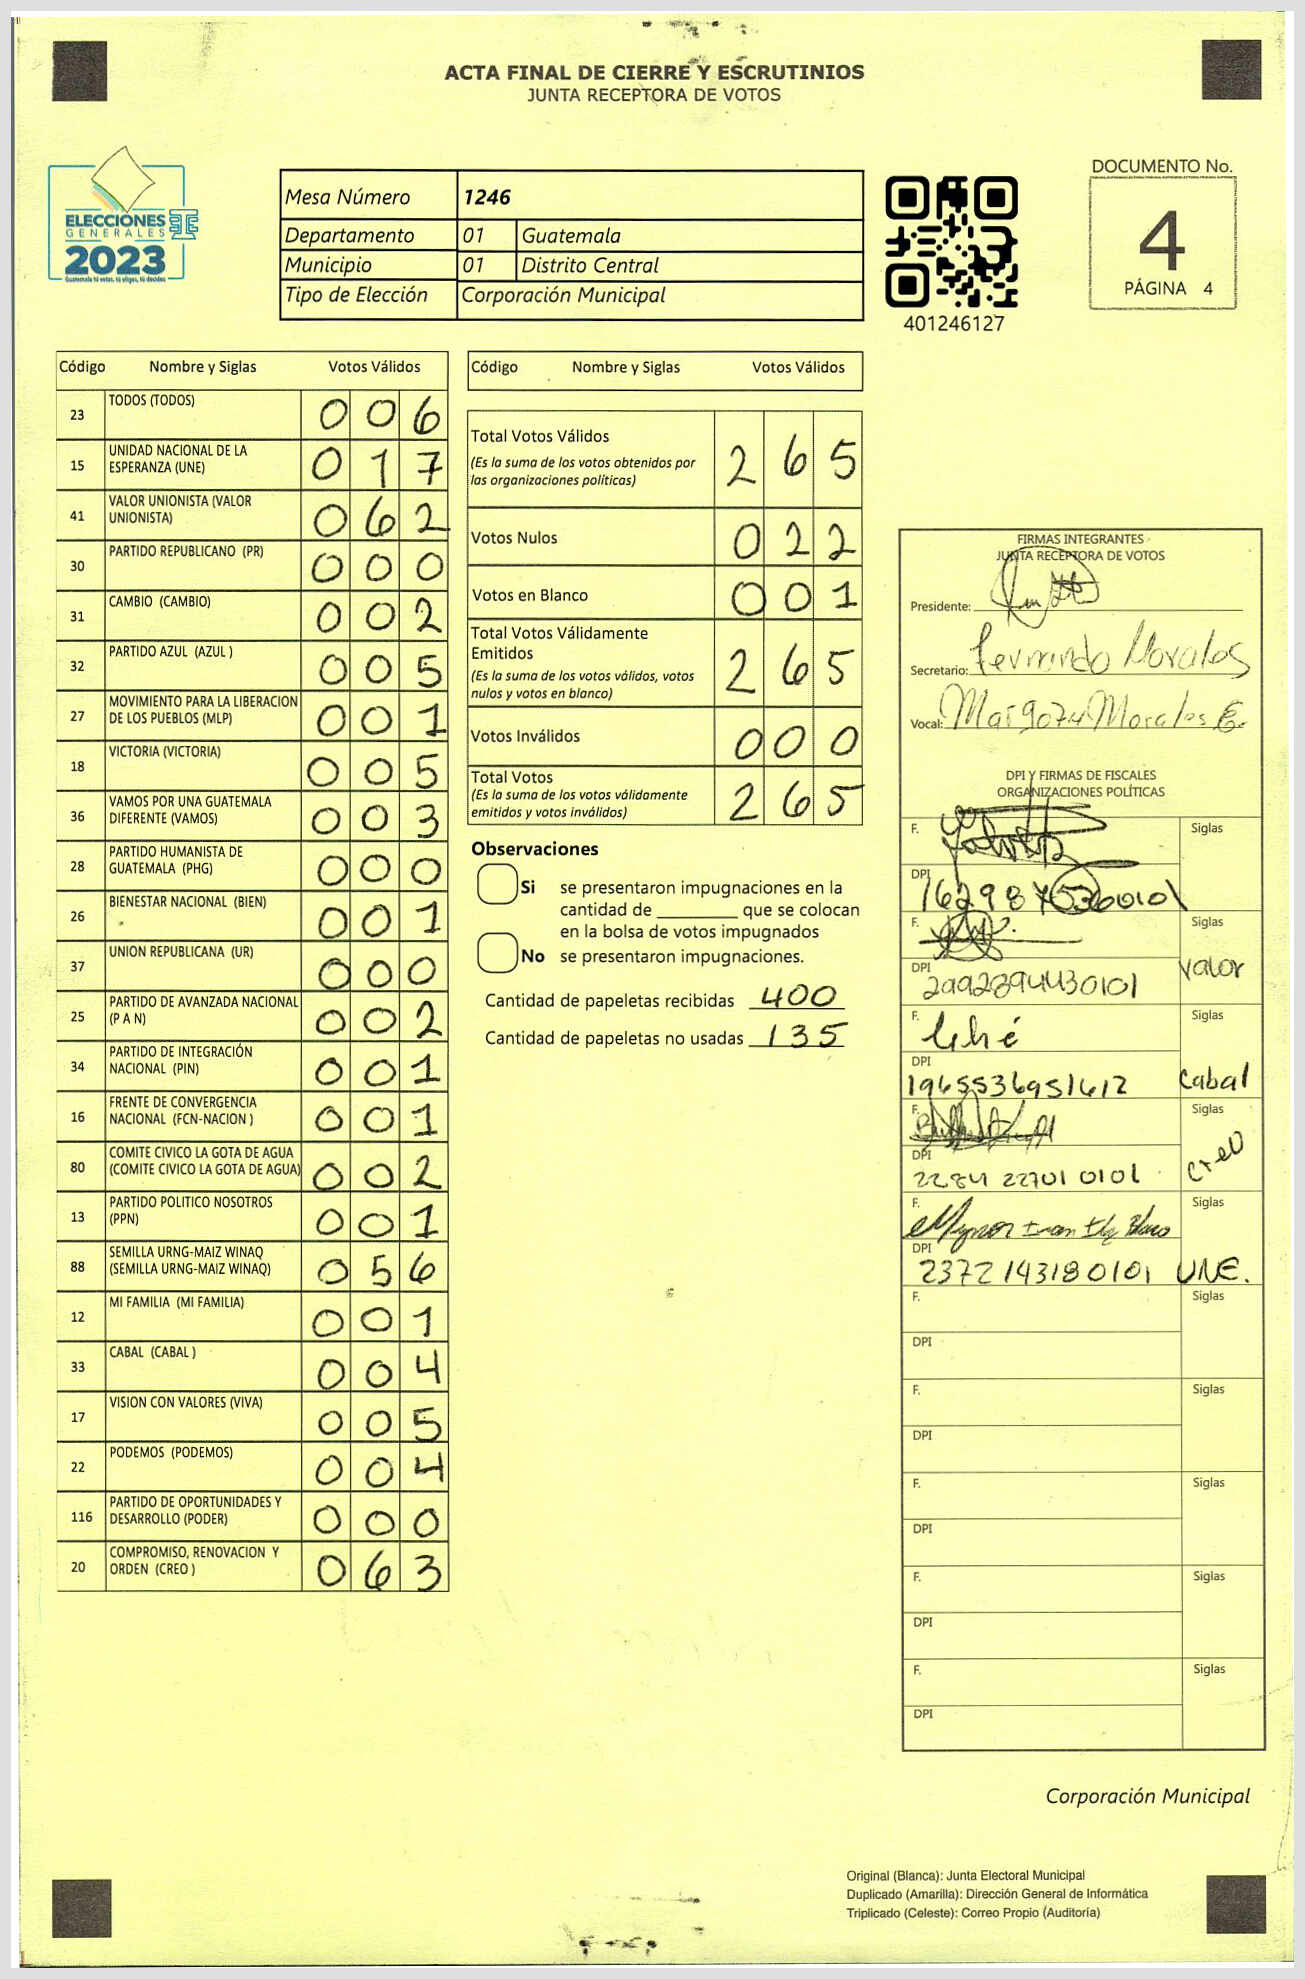 ACTA FINAL DE CIERRE Y ESCRUTINIOS
JUNTA RECEPTORA DE VOTOS
ELECCIONES
GENERALES
2023
Guatemala tú votas, tú eliges, tú decides
Mesa Número 1246
Departamento 01 Guatemala
Municipio 01 Distrito Central
Tipo de Elección Corporación Municipal
401246127
DOCUMENTO No.
4
PÁGINA 4
Código Nombre y Siglas Votos Válidos
23 TODOS (TODOS) 006
15 UNIDAD NACIONAL DE LA
ESPERANZA (UNE) 017
41 VALOR UNIONISTA (VALOR
UNIONISTA) 062
30 PARTIDO REPUBLICANO (PR) 000
31 CAMBIO (CAMBIO) 002
32 PARTIDO AZUL (AZUL ) 005
27 MOVIMIENTO PARA LA LIBERACION
DE LOS PUEBLOS (MLP) 001
18 VICTORIA (VICTORIA) 005
36 VAMOS POR UNA GUATEMALA
DIFERENTE (VAMOS) 003
28 PARTIDO HUMANISTA DE
GUATEMALA (PHG) 000
26 BIENESTAR NACIONAL (BIEN) 001
37 UNION REPUBLICANA (UR) 000
25 PARTIDO DE AVANZADA NACIONAL
(P A N) 002
34 PARTIDO DE INTEGRACIÓN
NACIONAL (PIN) 001
16 FRENTE DE CONVERGENCIA
NACIONAL (FCN-NACION ) 001
80 COMITE CIVICO LA GOTA DE AGUA
(COMITE CIVICO LA GOTA DE AGUA) 002
13 PARTIDO POLITICO NOSOTROS
(PPN) 001
88 SEMILLA URNG-MAIZ WINAQ
(SEMILLA URNG-MAIZ WINAQ) 056
12 MI FAMILIA (MI FAMILIA) 001
33 CABAL (CABAL ) 004
17 VISION CON VALORES (VIVA) 005
22 PODEMOS (PODEMOS) 004
116 PARTIDO DE OPORTUNIDADES Y
DESARROLLO (PODER) 000
20 COMPROMISO, RENOVACION Y
ORDEN (CREO ) 063
Código Nombre y Siglas Votos Válidos
Total Votos Válidos 265
(Es la suma de los votos obtenidos por
las organizaciones políticas)
Votos Nulos 022
Votos en Blanco 001
Total Votos Válidamente
Emitidos 265
(Es la suma de los votos válidos, votos
nulos y votos en blanco)
Votos Inválidos 000
Total Votos 265
(Es la suma de los votos válidamente
emitidos y votos inválidos)
Observaciones
Si se presentaron impugnaciones en la
cantidad de ________ que se colocan
en la bolsa de votos impugnados
No se presentaron impugnaciones.
Cantidad de papeletas recibidas 400
Cantidad de papeletas no usadas 135
FIRMAS INTEGRANTES
JUNTA RECEPTORA DE VOTOS
Presidente:
Secretario: Fernando Morales
Vocal: Morales
DPI Y FIRMAS DE FISCALES
ORGANIZACIONES POLÍTICAS
F. Siglas
DPI
F. Siglas
DPI 2992394430101 Valor
F. Siglas
DPI
1965536951612 Cabal
F. Siglas
DPI
2284 22701 0101 Creo
F. Siglas
DPI
2372 143180101 UNE.
F. Siglas
DPI
F. Siglas
DPI
F. Siglas
DPI
F. Siglas
DPI
F. Siglas
DPI
Corporación Municipal
Original (Blanca): Junta Electoral Municipal
Duplicado (Amarilla): Dirección General de Informática
Triplicado (Celeste): Correo Propio (Auditoría)